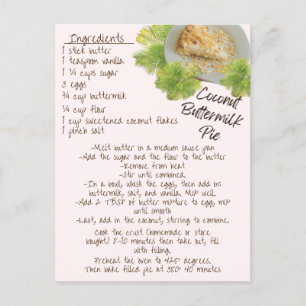 Ingredients
1 stick butter
1 teaspoon vanilla
1 ¼ cups sugar
3 eggs
¾ cup buttermilk
¼ cup flour
1 cup sweetened coconut flakes
1 pinch salt
Coconut
Buttermilk
Pie
-Melt butter in a medium sauce pan
-Add the sugar and the flour to the butter
-Remove from heat
-Stir until combined.
-In a bowl, whisk the eggs, then add in:
buttermilk, salt, and vanilla. Mix well.
-Add 2 TBSP of butter mixture to egg, mix
until smooth
-Last, add in the coconut, stirring to combine.
Cook the crust (homemade or store
bought) 8-10 minutes then take out, fill
with filling.
Preheat the oven to 425 degrees,
Then bake filled pie at 350 40 minutes